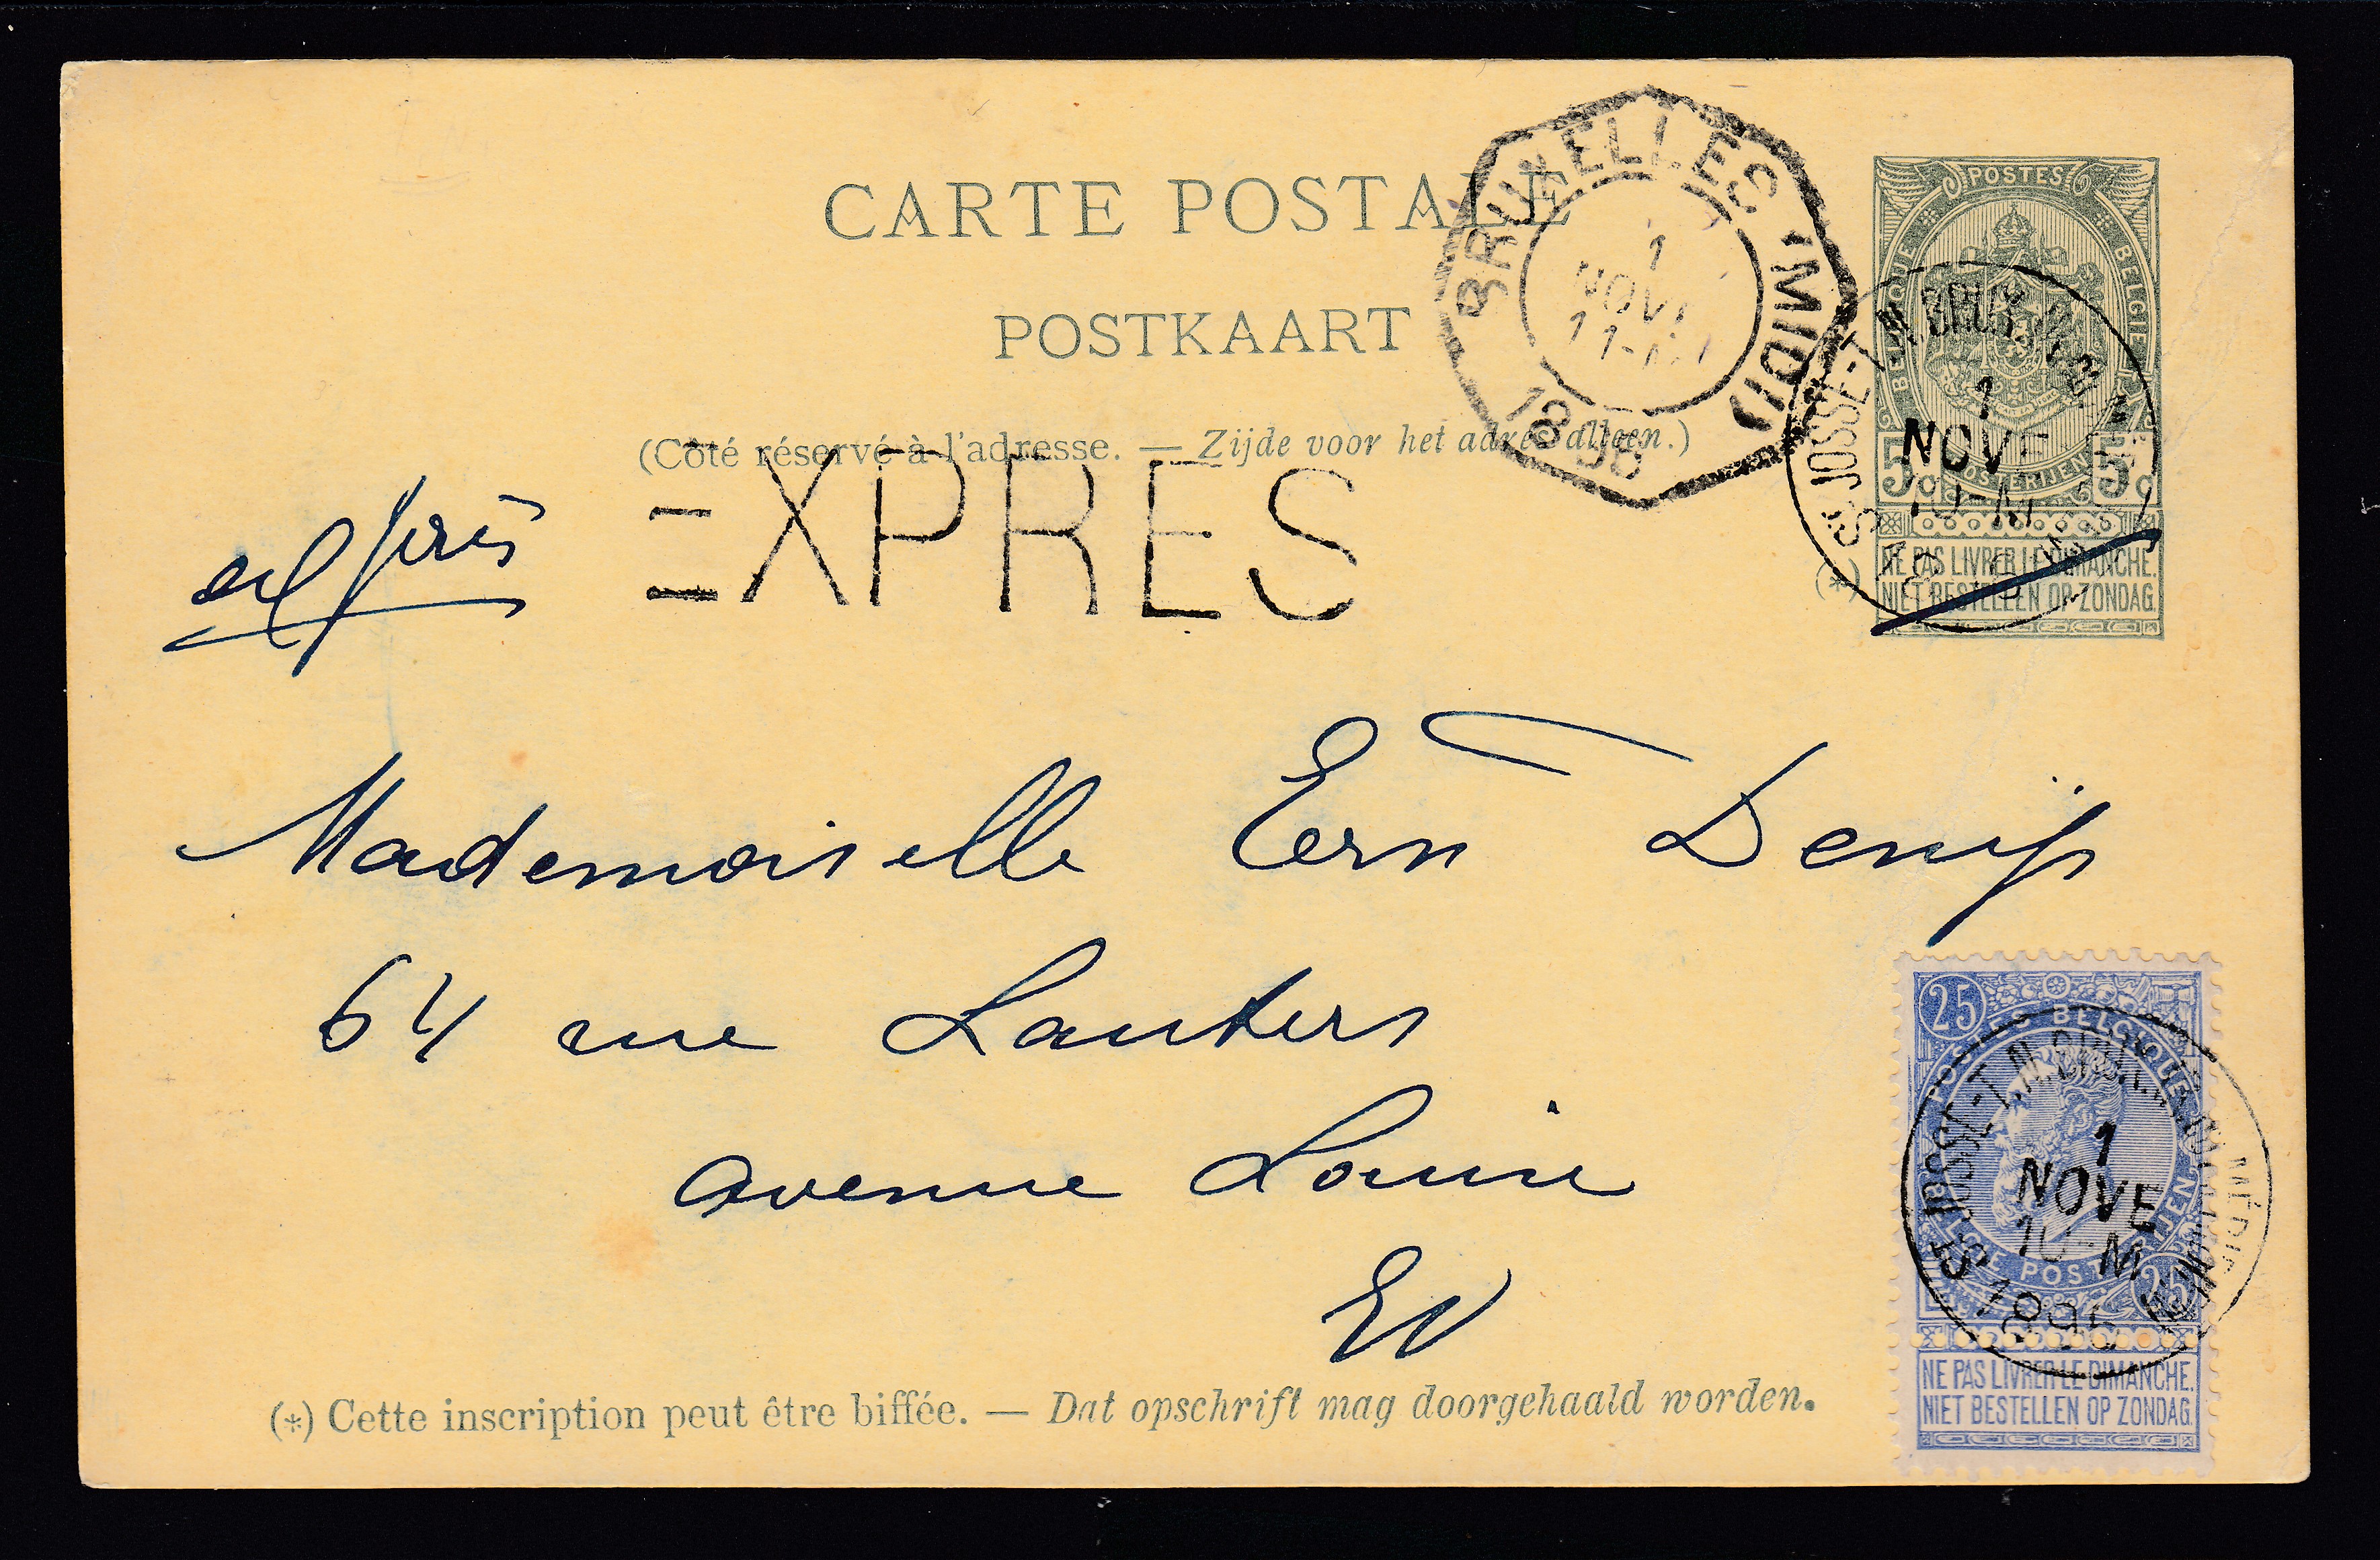 CARTE POSTALE
POSTKAART
(Côté réservé à l'adresse. — Zijde voor het adres alleen.)
BRUXELLES (MIDI)
1
NOV
11-M
POSTES
BELGIQUE BELGIE
POSTERIJEN
5c 5c
ST JOSSE-T-N
1
NOVE
10-M
(*) NE PAS LIVRER LE DIMANCHE.
NIET BESTELLEN OP ZONDAG.
exprès
EXPRES
Mademoiselle Ern Denijs
64 rue Lauters
avenue Louise
EV
25
POSTES BELGIQUE
BELGIE POSTERIJEN
25
ST JOSSE-T-N
1
NOVE
10-M
1895
NE PAS LIVRER LE DIMANCHE.
NIET BESTELLEN OP ZONDAG.
(*) Cette inscription peut être biffée. — Dat opschrift mag doorgehaald worden.